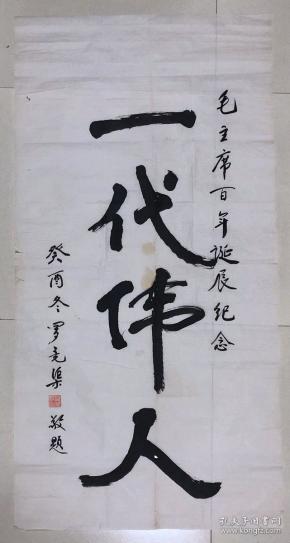 毛主席百年诞辰纪念
一代伟人
癸酉冬罗克渠敬题
孔夫子旧书网